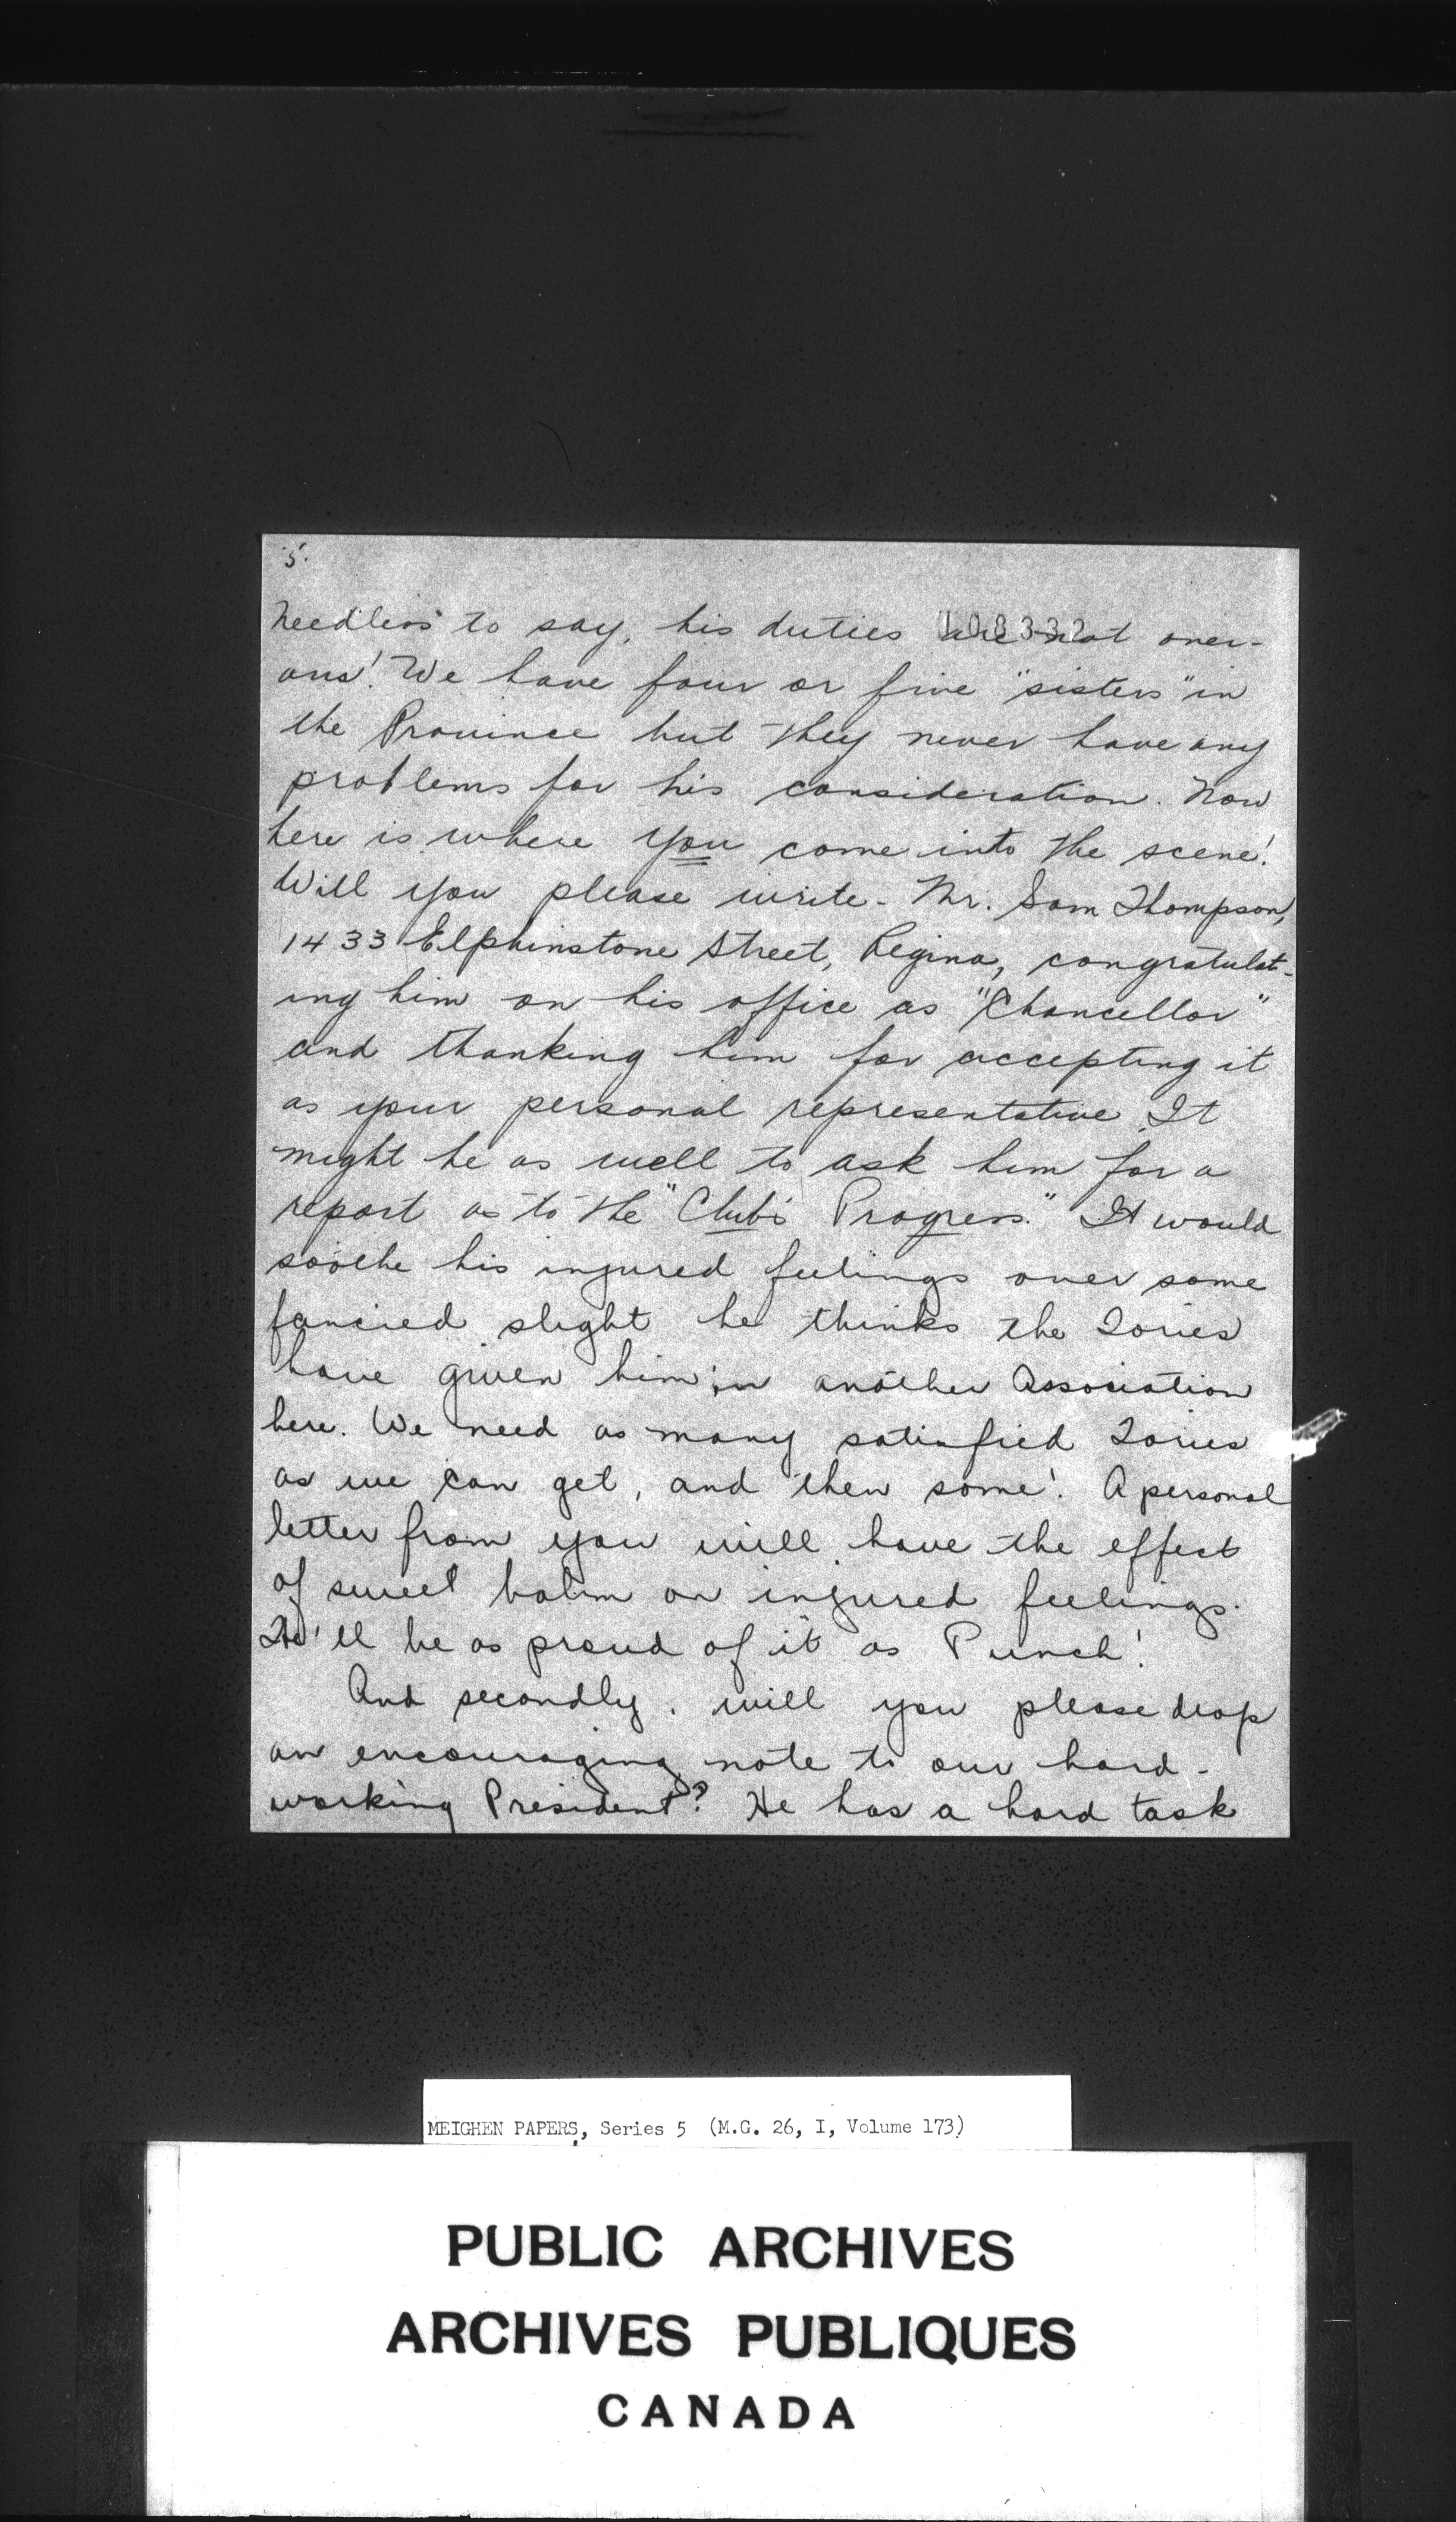 5.
108332
Needless to say, his duties are not oner-
ous! We have four or five "sisters" in
the Province but they never have any
problems for his consideration. Now
here is where you come into the scene!
Will you please write - Mr. Sam Thompson,
1433 Elphinstone Street, Regina, congratulat-
ing him on his office as "Chancellor"
and thanking him for accepting it
as your personal representative. It
might be as well to ask him for a
report as to the "Club's Progress." It would
soothe his injured feelings over some
fancied slight he thinks the Tories
have given him in another Association
here. We need as many satisfied Tories
as we can get, and then some! A personal
letter from you will have the effect
of sweet balm on injured feelings.
He'll be as proud of it as Punch!
And secondly, will you please drop
an encouraging note to our hard-
working President? He has a hard task
MEIGHEN PAPERS, Series 5 (M.G. 26, I, Volume 173)
PUBLIC ARCHIVES
ARCHIVES PUBLIQUES
CANADA